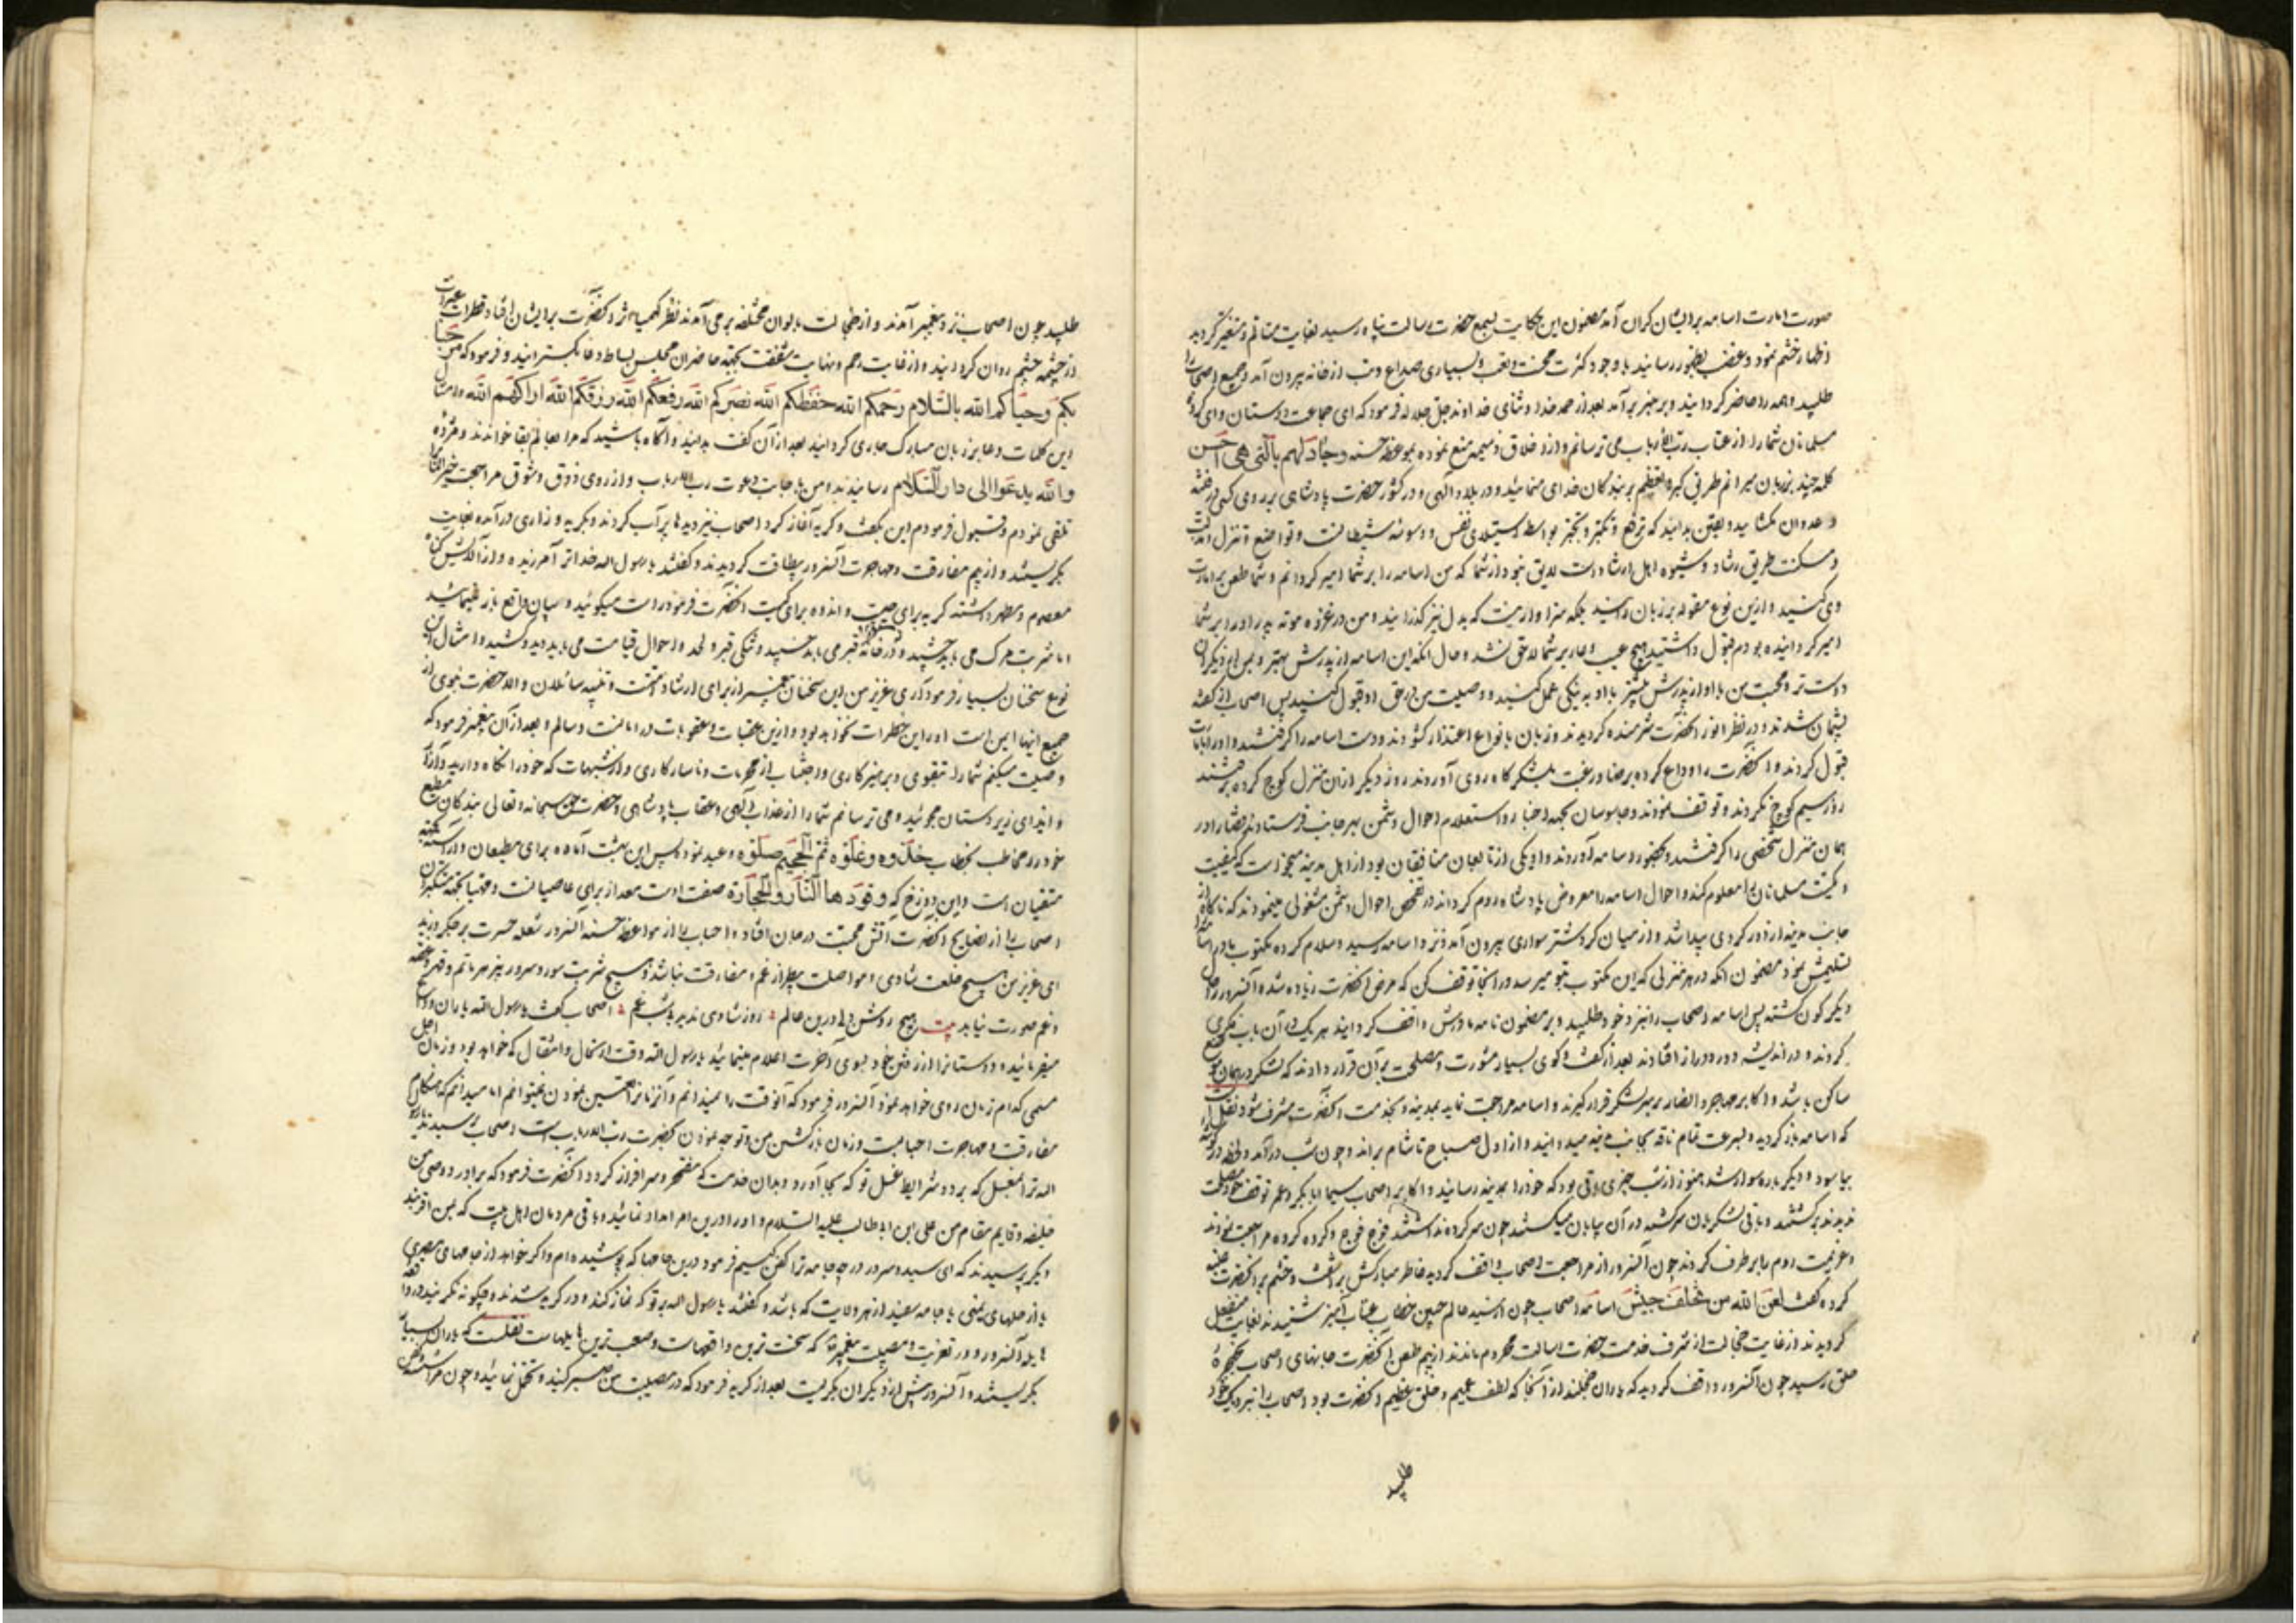 صورت امارت اسامه برایشان گران آمد مضمون این حکایت بسمع حضرت رسالت پناه رسید بغایت متالم و متغیر گردید
اظهار خشم نمود و غضب بظهور رسانید باوجود کثرت محنت و تعب و بسیاری صداع و تب از خانه بیرون آمد و جمیع اصحاب را
طلبید و همه را حاضر گردانید و بر منبر برآمد بعد از حمد خدا و ثنای خداوند جل جلاله فرمود که ای جماعت دوستان و ای گروه
مسلمانان شما را از عتاب رب الارباب می ترسانم و از اخلاق ذمیمه منع نموده بموعظه حسنه و جادلهم بالتی هی احسن
کلمه چند بر زبان میرانم طریق کبر و تعظیم بر بندگان خدای منمائید و در بلاد الهی و در کشور حضرت پادشاهی بر روی کسی در فتنه
و عدوان مگشایید و یقین بدانید که ترفع و تکبر و تجبر بواسطه استیلای نفس و وسوسه شیطانست و تواضع و تنزل
و مسکنت طریق رشاد و شیوه اهل ارشاد است لایق نبود از شما که من اسامه را بر شما امیر گردانم و شما طعن بر امارت
وی کنید و ازین نوع مقوله بر زبان رانید بلکه سزاوار نیست که بدل نیز گذرانید و من در غزوه موته پدر او را بر شما
امیر گردانیده بودم قبول داشتید هیچ عیب و عار بر شما لاحق نشد و حال انکه این اسامه از پدرش بهتر و بمن از دیگران
دوست تر و محبت من با او از پدرش بیشتر با او به نیکی عمل کنید و وصیت من در حق او قبول کنید پس اصحاب از گفته
پشیمان شدند و در نظر انور انحضرت شرمنده گردیدند و زبان بانواع اعتذار گشودند و دست اسامه را گرفتند و او را بامارت
قبول کردند و انحضرت را وداع کرده برضا و رغبت بلشکرگاه روی آوردند روز دیگر از ان منزل کوچ کرده برفتند
روز سیم کوچ نکردند و توقف نمودند و جاسوسان بجهه اخبار و استعلام احوال دشمن بهر جانب فرستادند قضا را در
همان منزل شخصی را گرفتند و بحضور اسامه آوردند و او یکی از تابعان منافقان بود از اهل مدینه میخواست که کیفیت
و کمیت مسلمانان را معلوم کند و احوال اسامه را معروض پادشاه روم گرداند در تفحص احوال دشمن مشغولی مینمودند که ناگاه از
جانب مدینه از دور گردی پیدا شد و از میان گرد شتر سواری بیرون آمد و نزد اسامه رسید و سلام کرده مکتوب مادر اسامه
تسلیمش نمود مضمون انکه در هر منزلی که این مکتوب بتو میرسد در انجا توقف کن که مرض انحضرت زیاده شده و آنسرور را حال
دیگرگون گشته پس اسامه اصحاب را نزد خود طلبید و بر مضمون نامه مادرش واقف گردانید هر یک در آن باب فکری
کردند و در اندیشه دور و دراز افتادند بعد از گفت و گوی بسیار مشورت و مصلحت بر آن قرار دادند که لشکر در همان موضع
ساکن باشد و اکابر مهاجر و انصار بر سر لشکر قرار گیرند و اسامه مراجعت نماید بمدینه و بخدمت انحضرت مشرف شود نقلست
که اسامه باز گردید و بسرعت تمام ناقه بجانب مدینه میدوانید و از اول صباح تا شام براند و چون شب درآمد و لحظه در گوشه
بیاسود و دیگر باره سوار شد هنوز از شب چیزی باقی بود که خود را بمدینه رسانید و اکابر اصحاب سیما ابابکر و عمر توقف خود مصلحت
ندیدند برگشتند و باقی لشکریان سرگشته در آن بیابان میگشتند چون سرکرده نداشتند فوج فوج و گروه گروه مراجعت نمودند
و عزیمت روم را بر طرف کردند چون آنسرور از مراجعت اصحاب واقف گردید خاطر مبارکش برآشفت و خشم بر انحضرت غلبه
کرده گفت لعن الله من تخلف جیش اسامه اصحاب چون از سید عالم چنین خطاب عتاب آمیز شنیدند بغایت منفعل
گردیدند از غایت خجالت از شرف خدمت حضرت رسالت محروم ماندند از بیم طعن انحضرت جانهای اصحاب بحنجره
حلق رسید چون آنسرور واقف گردید که یاران خجلند از آنجا که لطف عمیم و خلق عظیم انحضرت بود اصحاب را نزدیک خود
طلبید
طلبید چون اصحاب نزد پیغمبر آمدند و از خجالت بالوان مختلفه برمی آمدند نظر کیمیا اثر انحضرت بر ایشان افتاد قطرات عبرات
از چشمه چشم روان گردانید و از غایت رحم و نهایت شفقت بجهه حاضران مجلس بساط دعا بگسترانید و فرمود که مرحبا
بکم و حیاکم الله بالسلام رحمکم الله حفظکم الله نصرکم الله رفعکم الله رزقکم الله اداکهم الله و امثال
این کلمات دعا بر زبان مبارک جاری گردانید بعد از آن گفت بدانید و آگاه باشید که مرا بعالم بقا خواندند و مژده
والله یدعوا الی دار السلام رسانیدند و من باجابت دعوت رب الارباب و از روی ذوق و شوق مراجعت
تلقی نمودم و قبول فرمودم این بگفت و گریه آغاز کرد اصحاب نیز دیدها پر آب کردند و بگریه و زاری درآمده بغایت
بگریستند و از بیم مفارقت و مهاجرت آنسرور بیطاقت گردیدند و گفتند یا رسول الله خدا ترا آمرزیده و از آلایش گناه
معصوم و مطهر داشته گریه برای چیست و اندوه برای کیست انحضرت فرمود راست میگوئید و بیان واقع باز مینمائید
اما شربت مرگ می باید چشید و در خانه قبر می باید خسپید و تنگی قبر و لحد و احوال قیامت می باید دید و کشید و امثال این
نوع سخنان بسیار فرمود آری عزیز من این سخنان پیغمبر از برای ارشاد امت و تنبیه سائلان والا حضرت نبوی از
جمیع اینها ایمن است او را این خطرات نخواهد بود و ازین عقبات و عقوبات در امانست و سالم و بعد از آن پیغمبر فرمود که
وصیت میکنم شما را بتقوی و پرهیزکاری و اجتناب از محرمات و ناسازکاری و از شبهات که خود را نگاه دارید و آزار
و ایذای زیردستان مجوئید و می ترسانم شما را از عذاب الهی و عقاب پادشاهی و حضرت حق سبحانه و تعالی بندگان مطیع
خود را مخاطب بخطاب خذوه و غلوه ثم الجحیم صلوه وعید نموده پس این بهشت آماده برای مطیعان و آراسته بجهه
متقیان است و این دوزخ که وقودها النار والحجارة صفت اوست معد از برای عاصیانست و مهیا بجهه متکبران
اصحاب را از نصایح انحضرت آتش محبت در جان افتاد و احباب را از مواعظ حسنه آنسرور شعله حسرت بر جگر دوید
ای عزیز من هیچ خلعت شادی و مواصلت بی طراز غم و مفارقت نباشد و هیچ شربت سور و سرور بی زهر ماتم و قهر و غصه
و غم صورت نیابد بیت هیچ روشن دل درین عالم روز شادی ندید بی شب غم اصحاب گفتند یا رسول الله یاران را وداع
میفرمائید و دوستان را از رفتن خود بسوی آخرت اعلام مینمائید یا رسول الله وقت ارتحال و انتقال که خواهد بود و زمان اجل
مسمی کدام زمان روی خواهد نمود آنسرور فرمود که آنوقت را نمیدانم و آنزمانرا تعیین نمودن نمیتوانم اما میدانم که هنگام
مفارقت و مهاجرت احباست و زمان بازگشتن من و توجه نمودن بحضرت رب الارباب است اصحاب پرسیدند یا رسول
الله ترا بغسل که برد و شرایط غسل تو که بجا آورد و بدان خدمت که مفتخر و سرافراز گردد انحضرت فرمود که برادر و وصی من
خلیفه و قایم مقام من علی بن ابیطالب علیه السلام و او را درین امر امداد نمائید و باقی مردمان اهل بیت که بمن اقربند
دیگر پرسیدند که ای سید و سرور در چه جامه ترا کفن کنیم فرمود درین جامها که پوشیده ام و اگر خواهد از جامهای مصری
یا از حلهای یمنی یا جامه سفید از هر ولایت که باشد و گفتند یا رسول الله بر تو که نماز کند و در گریه شدند و چگونه نگریند در واقعه
هایله آنسرور و در تعزیت و مصیبت پیغمبر که سخت ترین واقعهاست و صعب ترین هایلهاست نقلست که یاران بسیار
بگریستند و آنسرور پیش از دیگران بگریست بعد از گریه فرمود که در مصیبت من صبر کنید و تحمل نمائید و چون مرا شسته و کفن